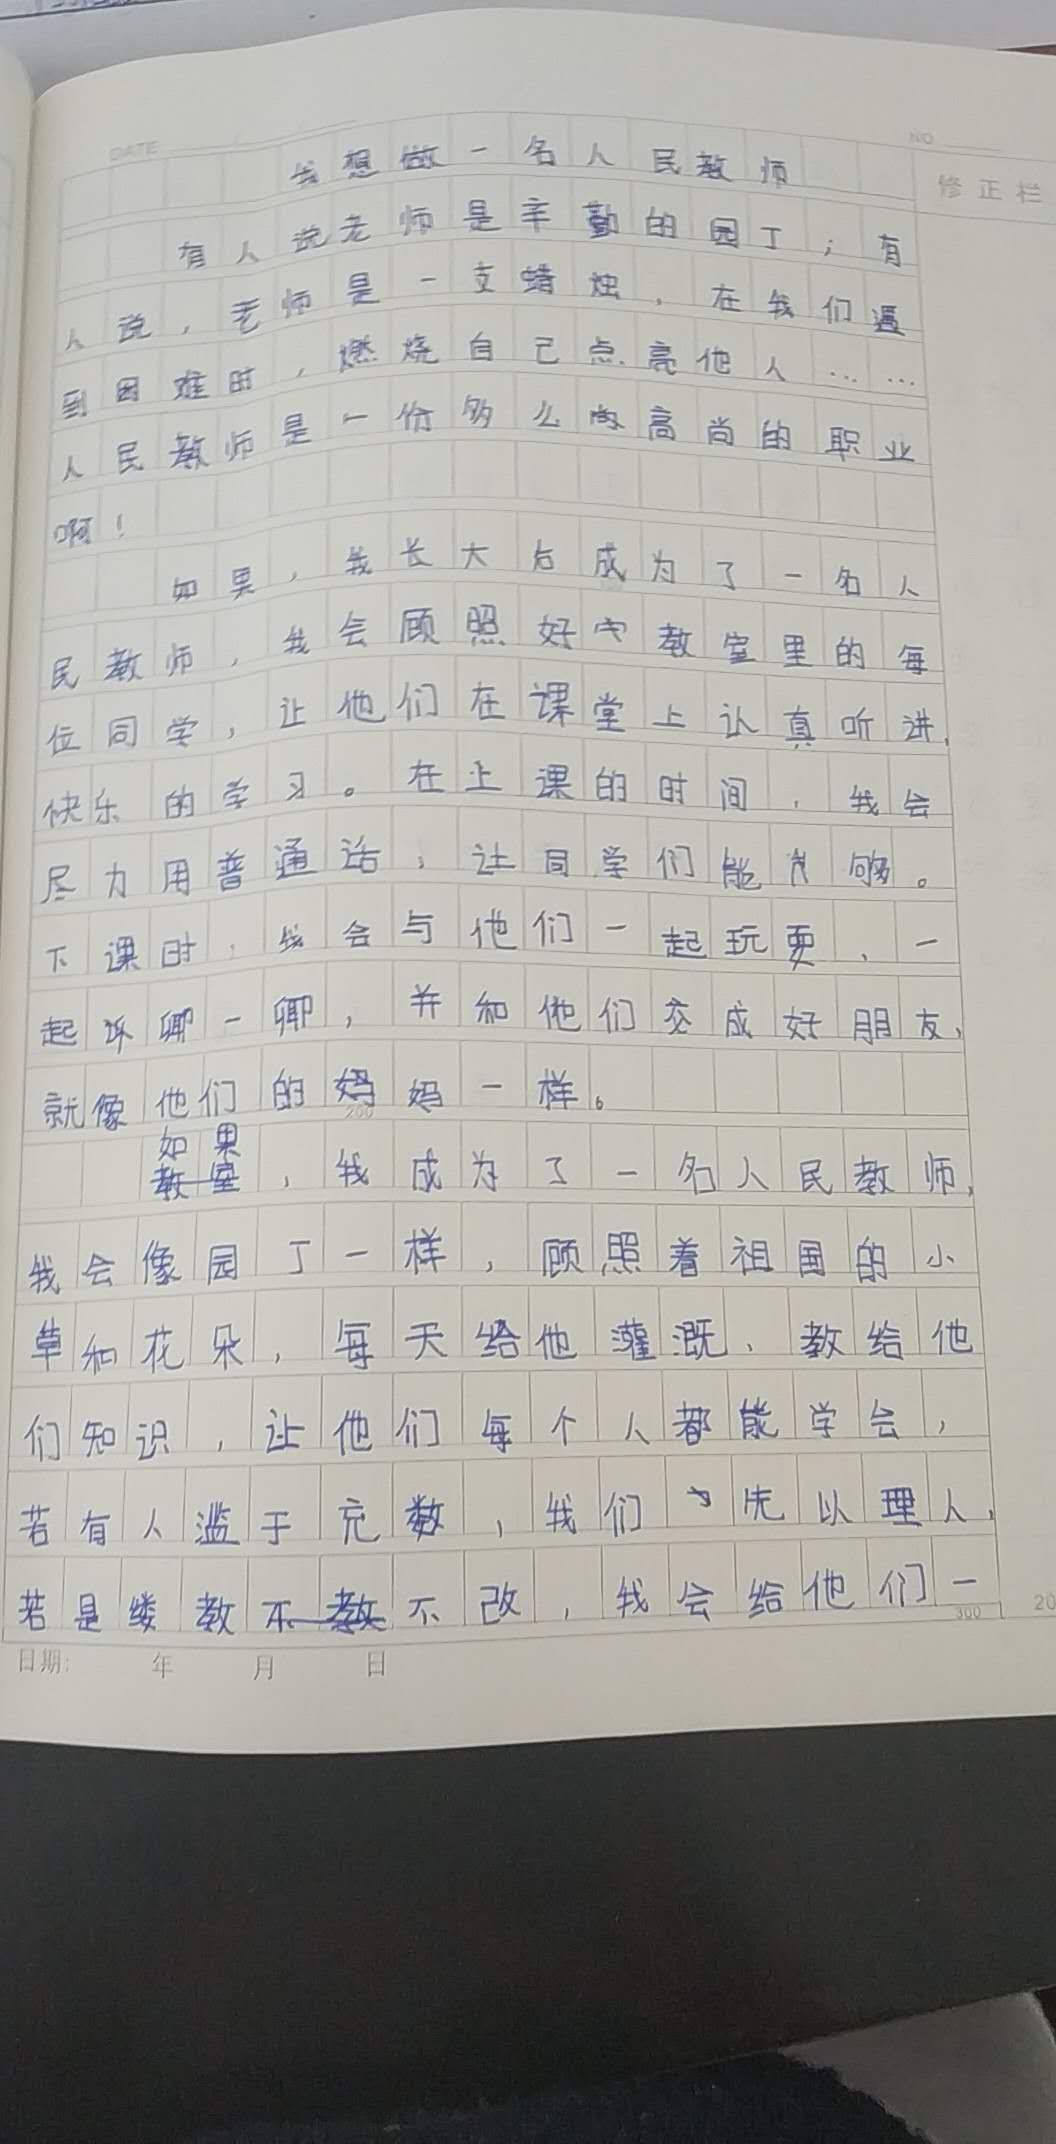 DATE
NO
修正栏
我想做一名人民教师
有人说老师是辛勤的园丁；有
人说，老师是一支蜡烛，在我们遇
到困难时，燃烧自己点亮他人……
人民教师是一份多么高尚的职业
啊！
如果，我长大后成为了一名人
民教师，我会顾照好教室里的每
位同学，让他们在课堂上认真听进，
快乐的学习。在上课的时间，我会
尽力用普通话，让同学们能够。
下课时，我会与他们一起玩耍，一
起聊一聊，并和他们交成好朋友，
就像他们的妈妈一样。
200
如果
教室，我成为了一名人民教师，
我会像园丁一样，顾照着祖国的小
草和花朵，每天给他灌溉，教给他
们知识，让他们每个人都能学会，
若有人滥于充数，我们先以理人，
若是缕教不教不改，我会给他们一
300
20
日期： 年 月 日